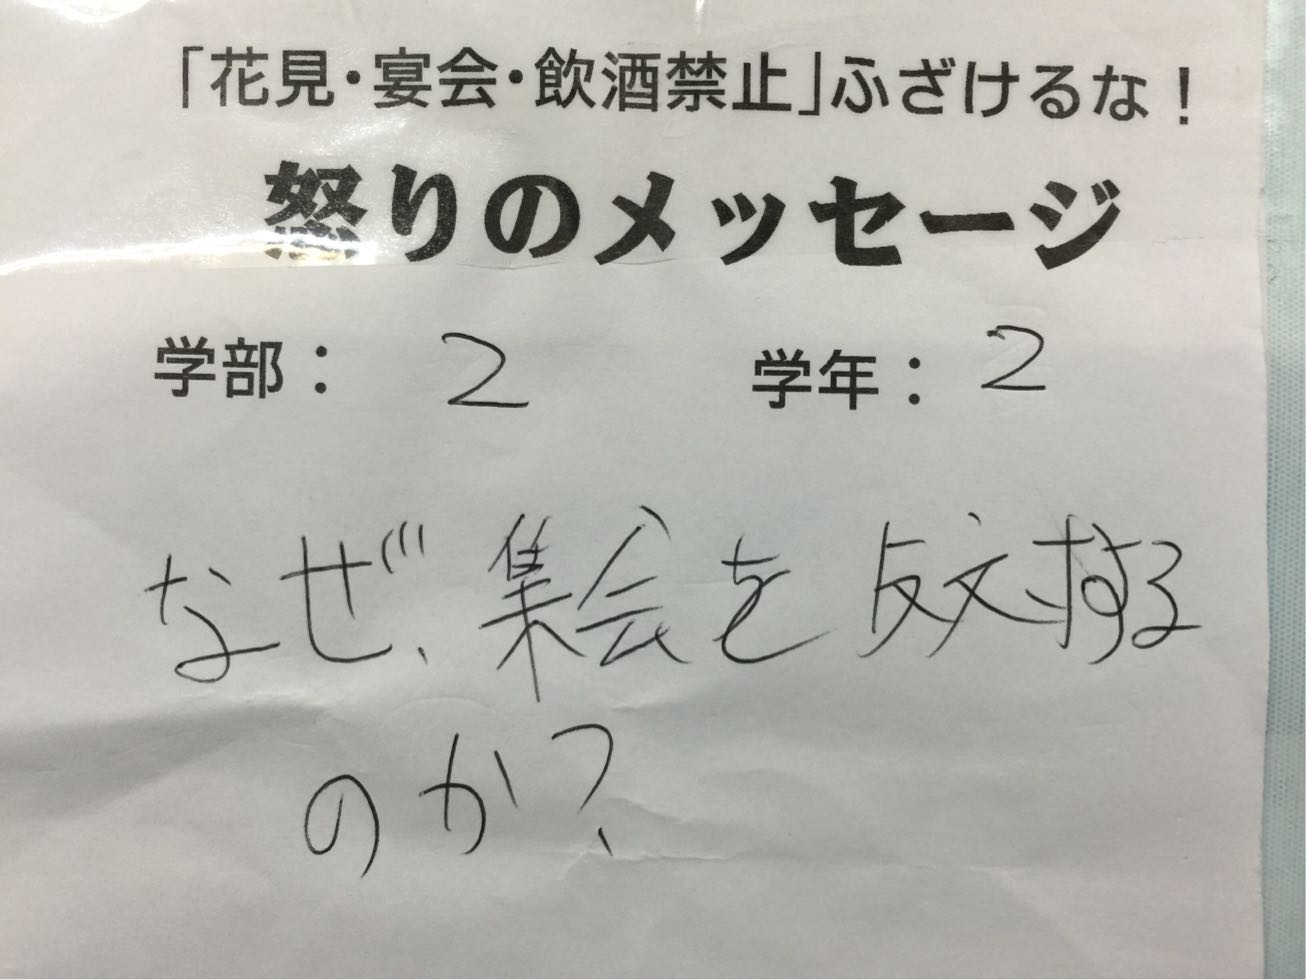 「花見・宴会・飲酒禁止」ふざけるな！
怒りのメッセージ
学部： 2 学年： 2
なぜ、集会を反対する
のか？